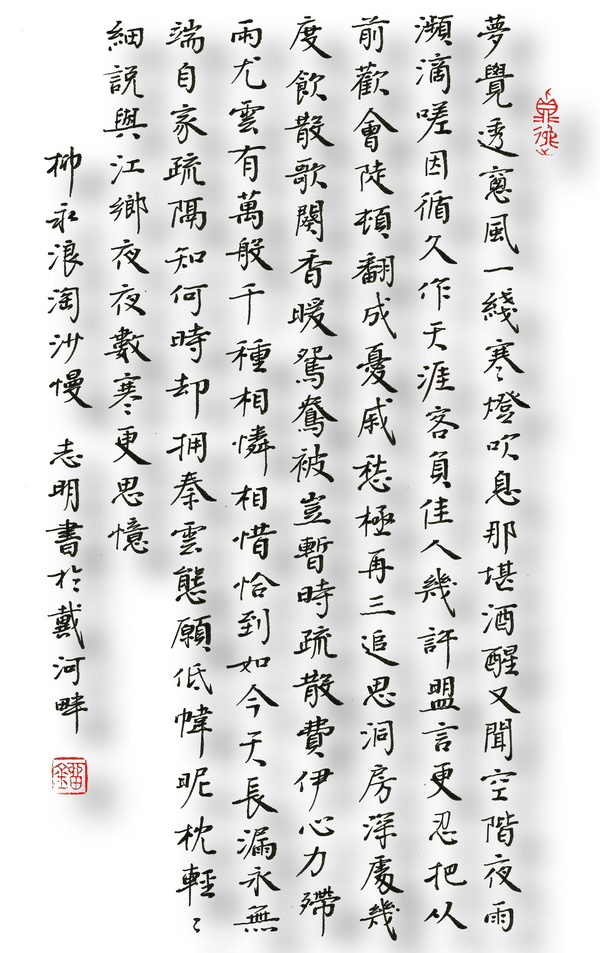 夢覺透窻風一綫寒燈吹息那堪酒醒又聞空階夜雨
瀕滴嗟因循久作天涯客負佳人幾許盟言更忍把从
前歡會陡頓翻成憂戚愁極再三追思洞房深處幾
度飲散歌闋香暖鴛鴦被豈暫時疏散費伊心力殢
雨尤雲有萬般千種相憐相惜恰到如今天長漏永無
端自家疏隔知何時却拥秦雲態願低幃昵枕輕〻
細說與江鄉夜夜數寒更思憶
柳永浪淘沙慢 志明書於戴河畔